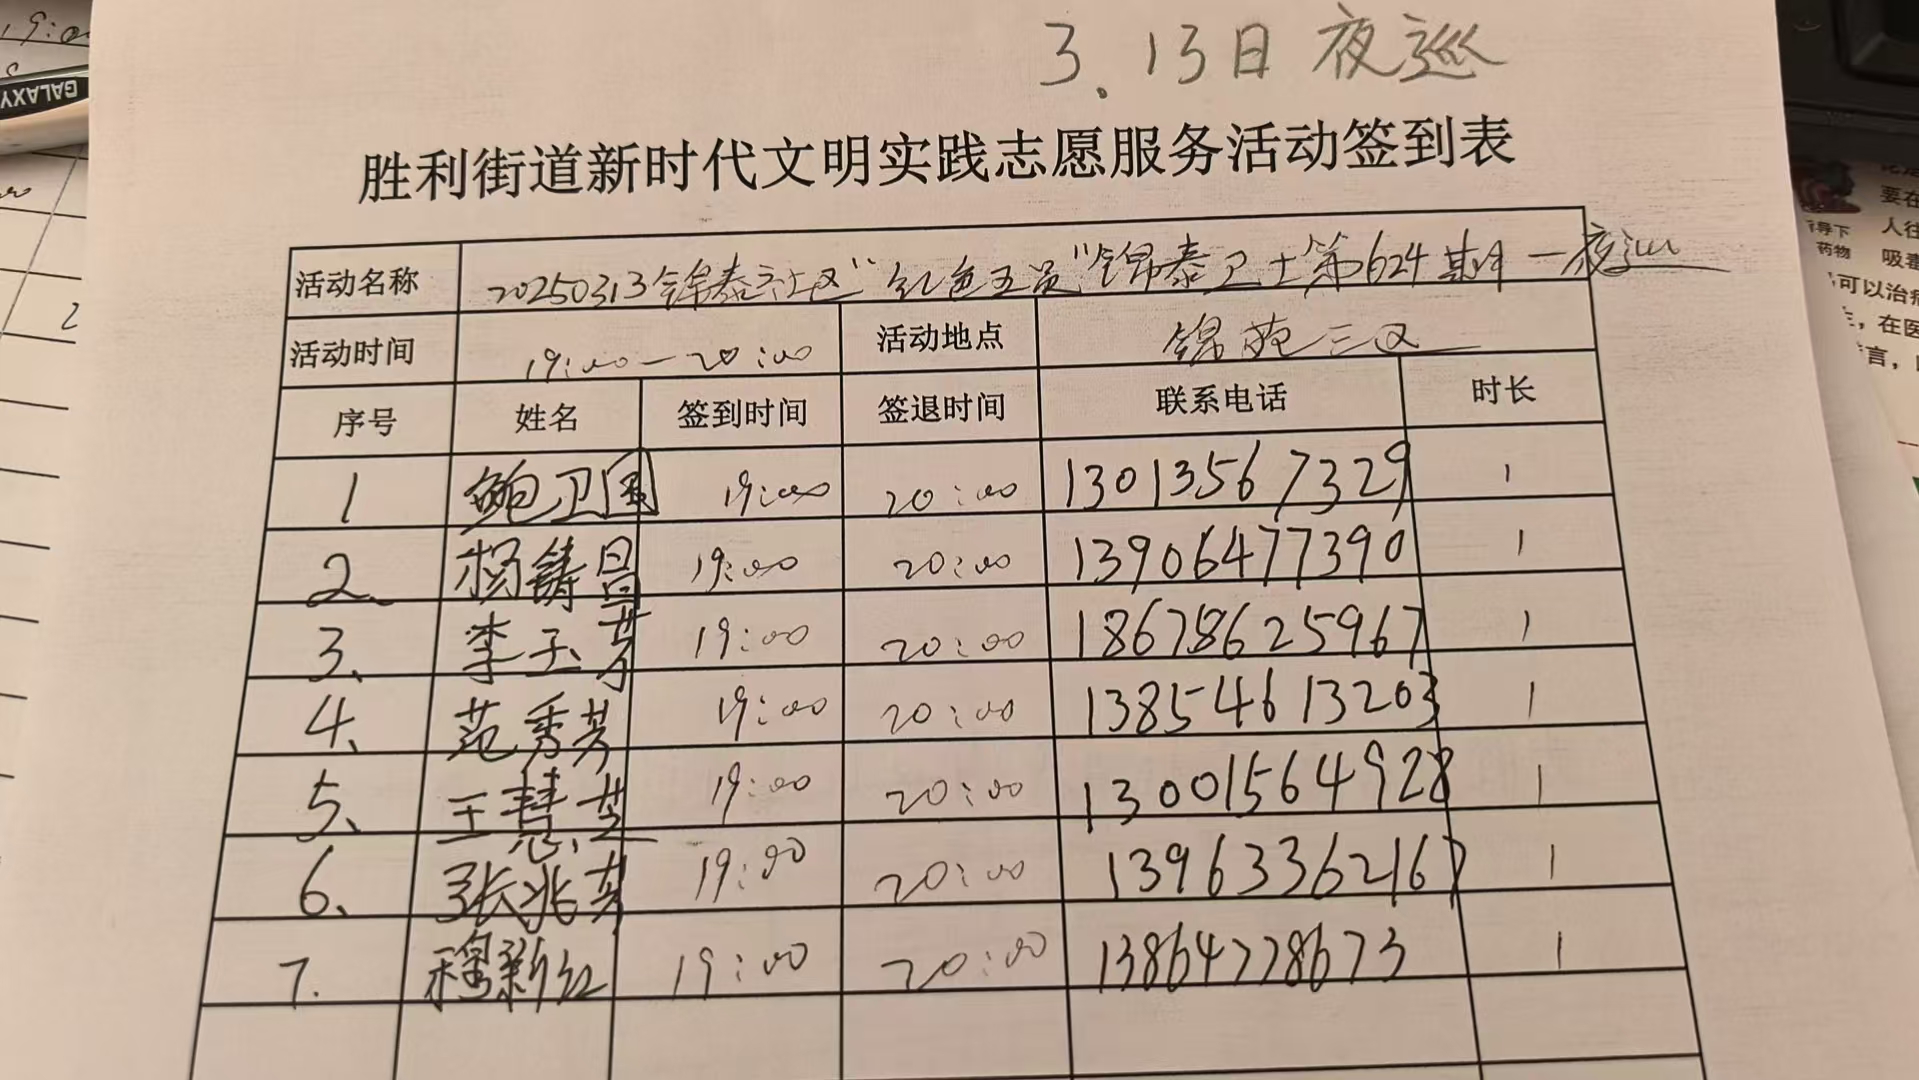 19:00
GALAXY
3.13日 夜巡
胜利街道新时代文明实践志愿服务活动签到表
活动名称 20250313锦泰社区“红色五员”锦泰卫士第624期—夜巡
活动时间 19:00—20:00 活动地点 锦苑三区
序号 姓名 签到时间 签退时间 联系电话 时长
1 鲍卫国 19:00 20:00 13013567329 1
2、 杨铸昌 19:00 20:00 13906477390 1
3、 李玉芳 19:00 20:00 18678625967 1
4、 范秀芳 19:00 20:00 13854613203 1
5、 王慧芝 19:00 20:00 13001564928 1
6、 张兆芳 19:00 20:00 13963362167 1
7. 穆新红 19:00 20:00 13864778673 1
要在
人往
导下
药物
吸毒
可以治
，在医
言，